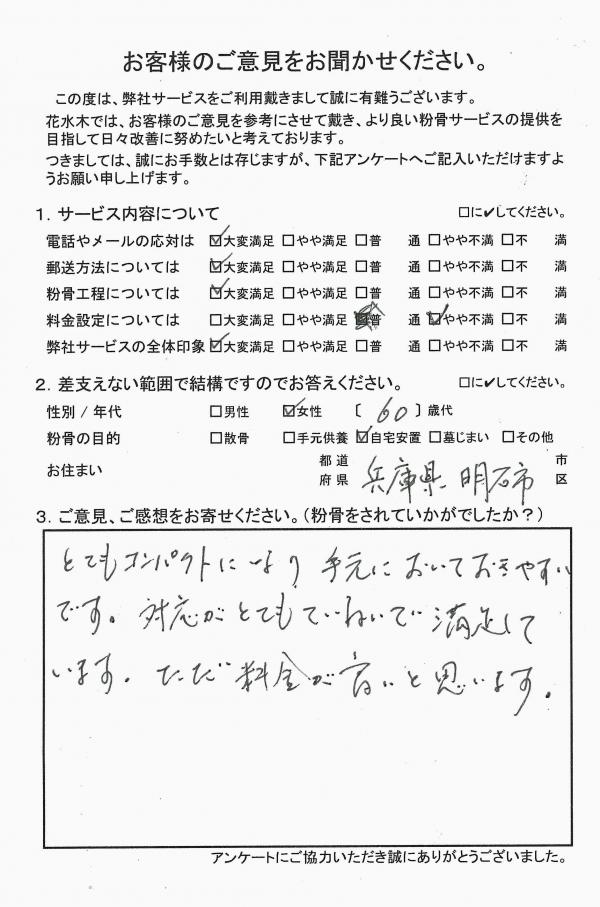 お客様のご意見をお聞かせください。
この度は、弊社サービスをご利用戴きまして誠に有難うございます。
花水木では、お客様のご意見を参考にさせて戴き、より良い粉骨サービスの提供を
目指して日々改善に努めたいと考えております。
つきましては、誠にお手数とは存じますが、下記アンケートへご記入いただけますよ
うお願い申し上げます。
1．サービス内容について □に✔してください。
電話やメールの応対は ☑大変満足 □やや満足 □普 通 □やや不満 □不 満
郵送方法については ☑大変満足 □やや満足 □普 通 □やや不満 □不 満
粉骨工程については ☑大変満足 □やや満足 □普 通 □やや不満 □不 満
料金設定については □大変満足 □やや満足 ■普 通 ☑やや不満 □不 満
弊社サービスの全体印象 ☑大変満足 □やや満足 □普 通 □やや不満 □不 満
2．差支えない範囲で結構ですのでお答えください。 □に✔してください。
性別 / 年代 □男性 ☑女性 〔 60 〕歳代
粉骨の目的 □散骨 □手元供養 ☑自宅安置 □墓じまい □その他
お住まい 都道府県 兵庫県 明石市 市区
3．ご意見、ご感想をお寄せください。（粉骨をされていかがでしたか？）
とてもコンパクトになり 手元においておきやすい
です。対応がとてもていねいで 満足して
います。ただ 料金が高いと思います。
アンケートにご協力いただき誠にありがとうございました。